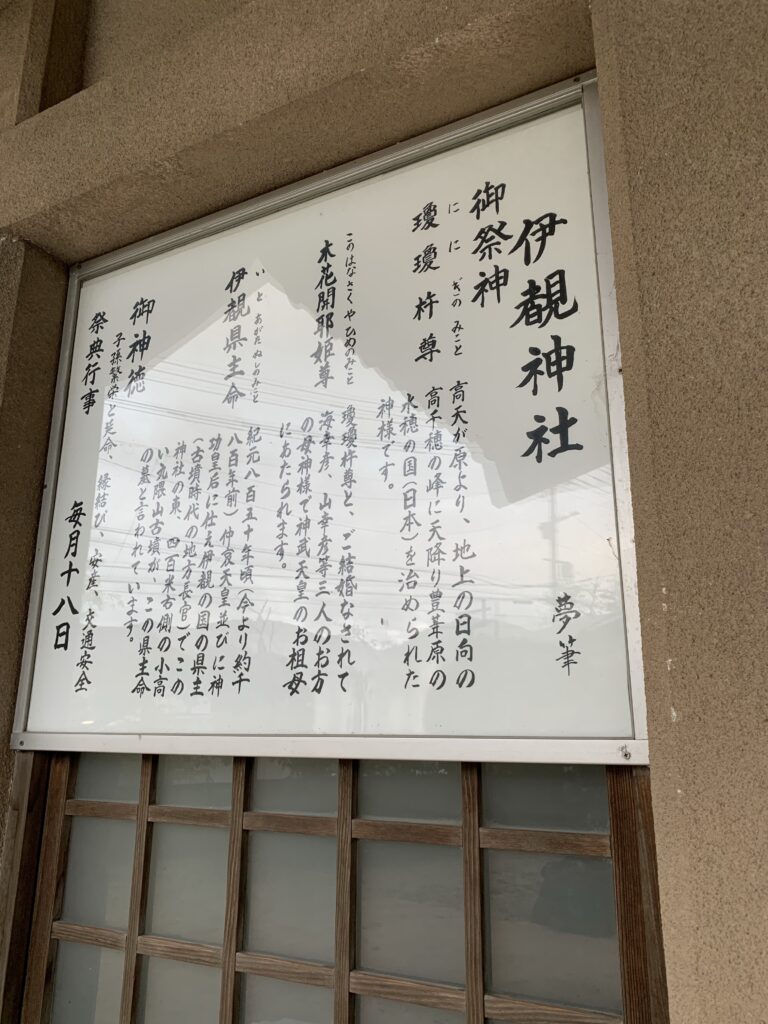 伊覩神社
夢筆
御祭神
ににぎのみこと
瓊瓊杵尊
高天が原より、地上の日向の
高千穂の峰に天降り豊葦原の
水穂の国(日本)を治められた
神様です。
このはなさくやひめのみこと
木花開耶姫尊
瓊瓊杵尊と、ご結婚なされて
海幸彦、山幸彦等三人のお方
の母神様で神武天皇のお祖母
にあたられます。
いとあがたぬしのみこと
伊覩県主命
紀元八百五十年頃(今より約千
八百年前)仲哀天皇並びに神
功皇后に仕え伊覩の国の県主
(古墳時代の地方長官)でこの
神社の東、四百米右側の小高
い丸隈山古墳が、この県主命
の墓と言われています。
御神徳
子孫繁栄と延命、縁結び、安産、交通安全
祭典行事
毎月十八日